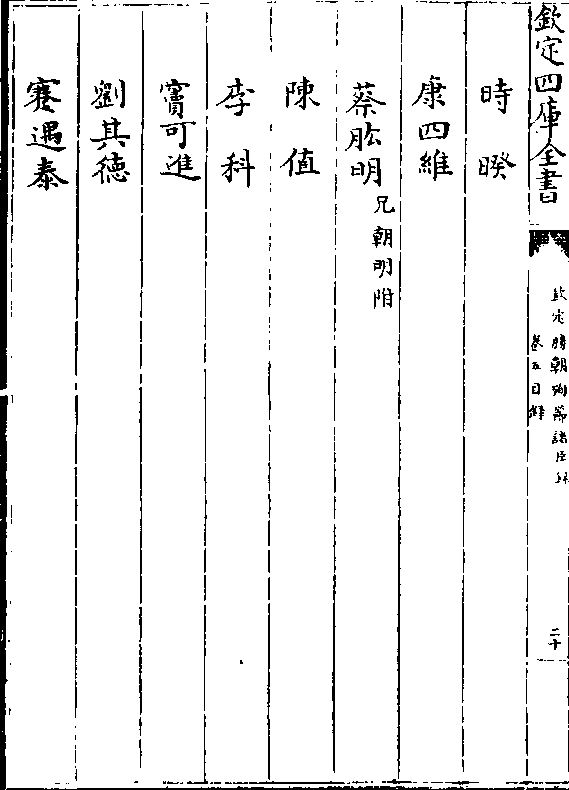 欽定四庫全書
欽定勝朝殉節諸臣錄
卷五目錄
二十
時暌
康四維
蔡肱明兄朝明附
陳值
李科
竇可進
劉其德
賽遇泰